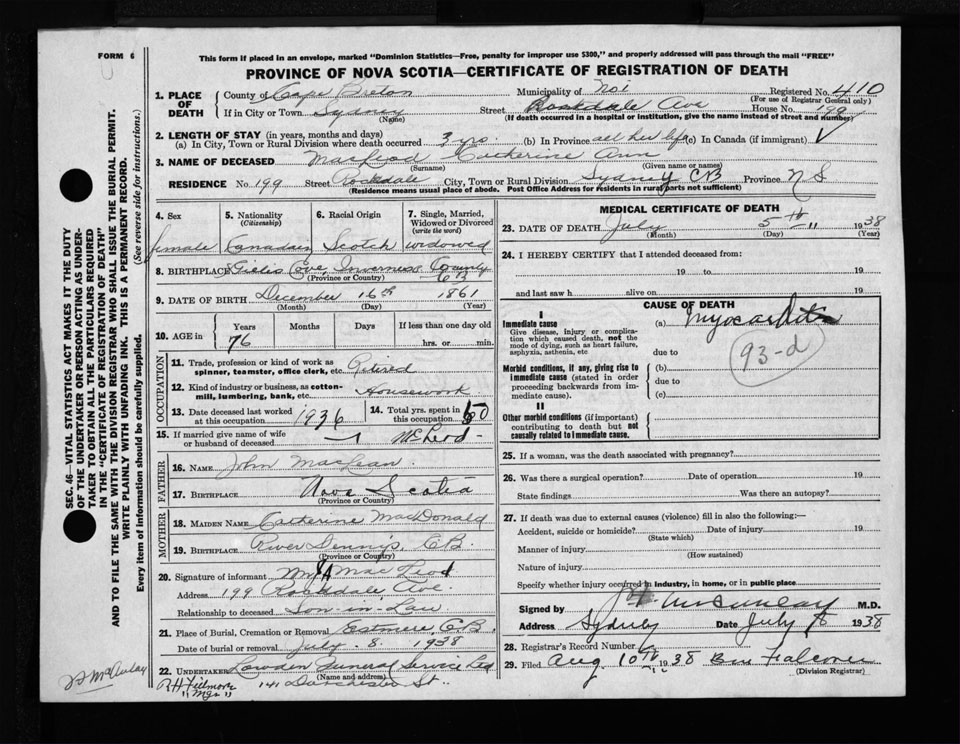 FORM 6
This form if placed in an envelope, marked "Dominion Statistics—Free, penalty for improper use $300," and properly addressed will pass through the mail "FREE"
PROVINCE OF NOVA SCOTIA—CERTIFICATE OF REGISTRATION OF DEATH
1. PLACE OF DEATH
County of Cape Breton Municipality of No 1 Registered No. 410
(For use of Registrar General only)
If in City or Town Sydney Street Rockdale Ave House No. 199
(Name) (If death occurred in a hospital or institution, give the name instead of street and number)
2. LENGTH OF STAY (in years, months and days)
(a) In City, Town or Rural Division where death occurred 3 yrs. (b) In Province all her life (c) In Canada (if immigrant)
3. NAME OF DECEASED MacLeod Catherine Ann
(Surname) (Given name or names)
RESIDENCE No. 199 Street Rockdale City, Town or Rural Division Sydney CB Province N S
(Residence means usual place of abode. Post Office Address for residents in rural parts not sufficient)
4. Sex 5. Nationality (Citizenship) 6. Racial Origin 7. Single, Married, Widowed or Divorced (write the word)
female Canadian Scotch widowed
8. BIRTHPLACE Cove, Inverness County
(Province or Country) CB
9. DATE OF BIRTH December 16th 1861
(Month) (Day) (Year)
10. AGE in Years Months Days If less than one day old
76 hrs. or min.
OCCUPATION
11. Trade, profession or kind of work as spinner, teamster, office clerk, etc. Retired
12. Kind of industry or business, as cotton-mill, lumbering, bank, etc. Housework
13. Date deceased last worked at this occupation 1936 14. Total yrs. spent in this occupation 50
15. If married give name of wife or husband of deceased McLeod
FATHER
16. NAME John MacLean
17. BIRTHPLACE Nova Scotia
(Province or Country)
MOTHER
18. MAIDEN NAME Catherine MacDonald
19. BIRTHPLACE River Dennys, C.B.
(Province or Country)
20. Signature of informant A MacLeod
Address 199 Rockdale Ave.
Relationship to deceased Son-in-Law
21. Place of Burial, Cremation or Removal Estmere, C.B.
Date of burial or removal July 8, 1938
22. UNDERTAKER Funeral Service Ltd
(Name and address)
141 Dorchester St.
R H Fillmore
"Mgr"
MEDICAL CERTIFICATE OF DEATH
23. DATE OF DEATH July 5th 1938
(Month) (Day) (Year)
24. I HEREBY CERTIFY that I attended deceased from
19 to 19
and last saw h alive on 19
CAUSE OF DEATH
I
Immediate cause (a) Myocarditis
Give disease, injury or complication which caused death, not the mode of dying, such as heart failure, asphyxia, asthenia, etc
due to
93-d
Morbid conditions, if any, giving rise to immediate cause (stated in order proceeding backwards from immediate cause).
(b)
due to
(c)
II
Other morbid conditions (if important) contributing to death but not causally related to immediate cause.
25. If a woman, was the death associated with pregnancy?
26. Was there a surgical operation? Date of operation 19
State findings Was there an autopsy?
27. If death was due to external causes (violence) fill in also the following:—
Accident, suicide or homicide? Date of injury 19
(State which)
Manner of injury
(How sustained)
Nature of injury
Specify whether injury occurred in industry, in home, or in public place
Signed by M.D.
Address Sydney Date July 8 1938
28. Registrar's Record Number
29. Filed Aug 10th 1938 Falconer
(Division Registrar)
SEC. 46—VITAL STATISTICS ACT MAKES IT THE DUTY
OF THE UNDERTAKER OR PERSON ACTING AS UNDER-
TAKER TO OBTAIN ALL THE PARTICULARS REQUIRED
IN THE "CERTIFICATE OF REGISTRATION OF DEATH"
AND TO FILE THE SAME WITH THE DIVISION REGISTRAR WHO SHALL ISSUE THE BURIAL PERMIT.
WRITE PLAINLY WITH UNFADING INK. THIS IS A PERMANENT RECORD.
Every item of information should be carefully supplied. (See reverse side for instructions.)